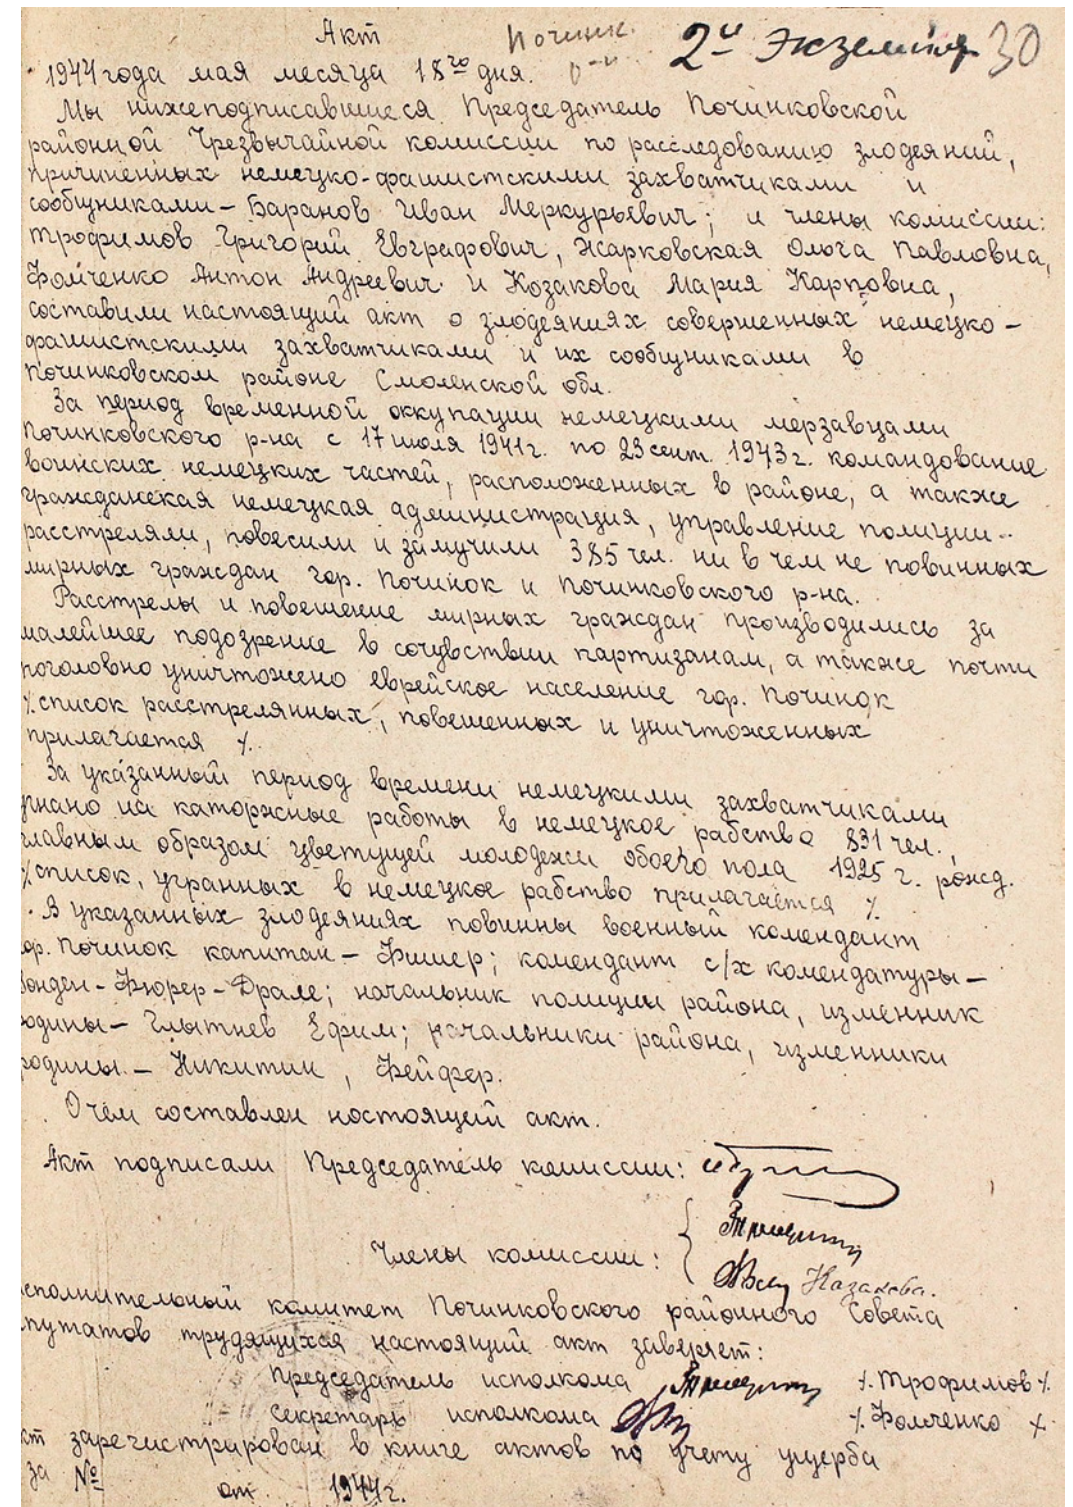 Акт
Починк. 2й экземпляр 30
1944 года мая месяца 18го дня. р-н
Мы нижеподписавшиеся Председатель Починковской
районной Чрезвычайной комиссии по расследованию злодеяний,
причиненных немецко-фашистскими захватчиками и
сообщниками – Баранов Иван Меркурьевич; и члены комиссии:
Трофимов Григорий Евграфович, Жарковская Ольга Павловна,
Фомченко Антон Андреевич и Козакова Мария Карповна,
составили настоящий акт о злодеяниях совершенных немецко-
фашистскими захватчиками и их сообщниками в
Починковском районе Смоленской обл.
За период временной оккупации немецкими мерзавцами
Починковского р-на с 17 июля 1941 г. по 23 сент. 1943 г. командование
воинских немецких частей, расположенных в районе, а также
гражданская немецкая администрация, управление полиции
расстреляли, повесили и замучили 385 чел. ни в чем не повинных
мирных граждан гор. Починок и Починковского р-на.
Расстрелы и повешение мирных граждан производились за
малейшее подозрение в сочувствии партизанам, а также почти
поголовно уничтожено еврейское население гор. Починок
⁒ список расстрелянных, повешенных и уничтоженных
прилагается ⁒.
За указанный период времени немецкими захватчиками
угнано на каторжные работы в немецкое рабство 831 чел.,
главным образом цветущей молодежи обоего пола 1925 г. рожд.
⁒ список, угнанных в немецкое рабство прилагается ⁒
В указанных злодеяниях повинны военный комендант
ор. Починок капитан – Фишер; комендант с/х комендатуры –
Зонден-Фюрер – Драле; начальник полиции района, изменник
родины – Глытнев Ефим; начальники района, изменники
родины – Никитин, Фейфер.
О чем составлен настоящий акт.
Акт подписали Председатель комиссии:
Члены комиссии:
Казакова.
сполнительный комитет Починковского районного Совета
путатов трудящихся настоящий акт заверяет:
Председатель исполкома ⁒ Трофимов ⁒
Секретарь исполкома ⁒ Фомченко ⁒
кт зарегистрирован в книге актов по учету ущерба
за № от 1944 г.